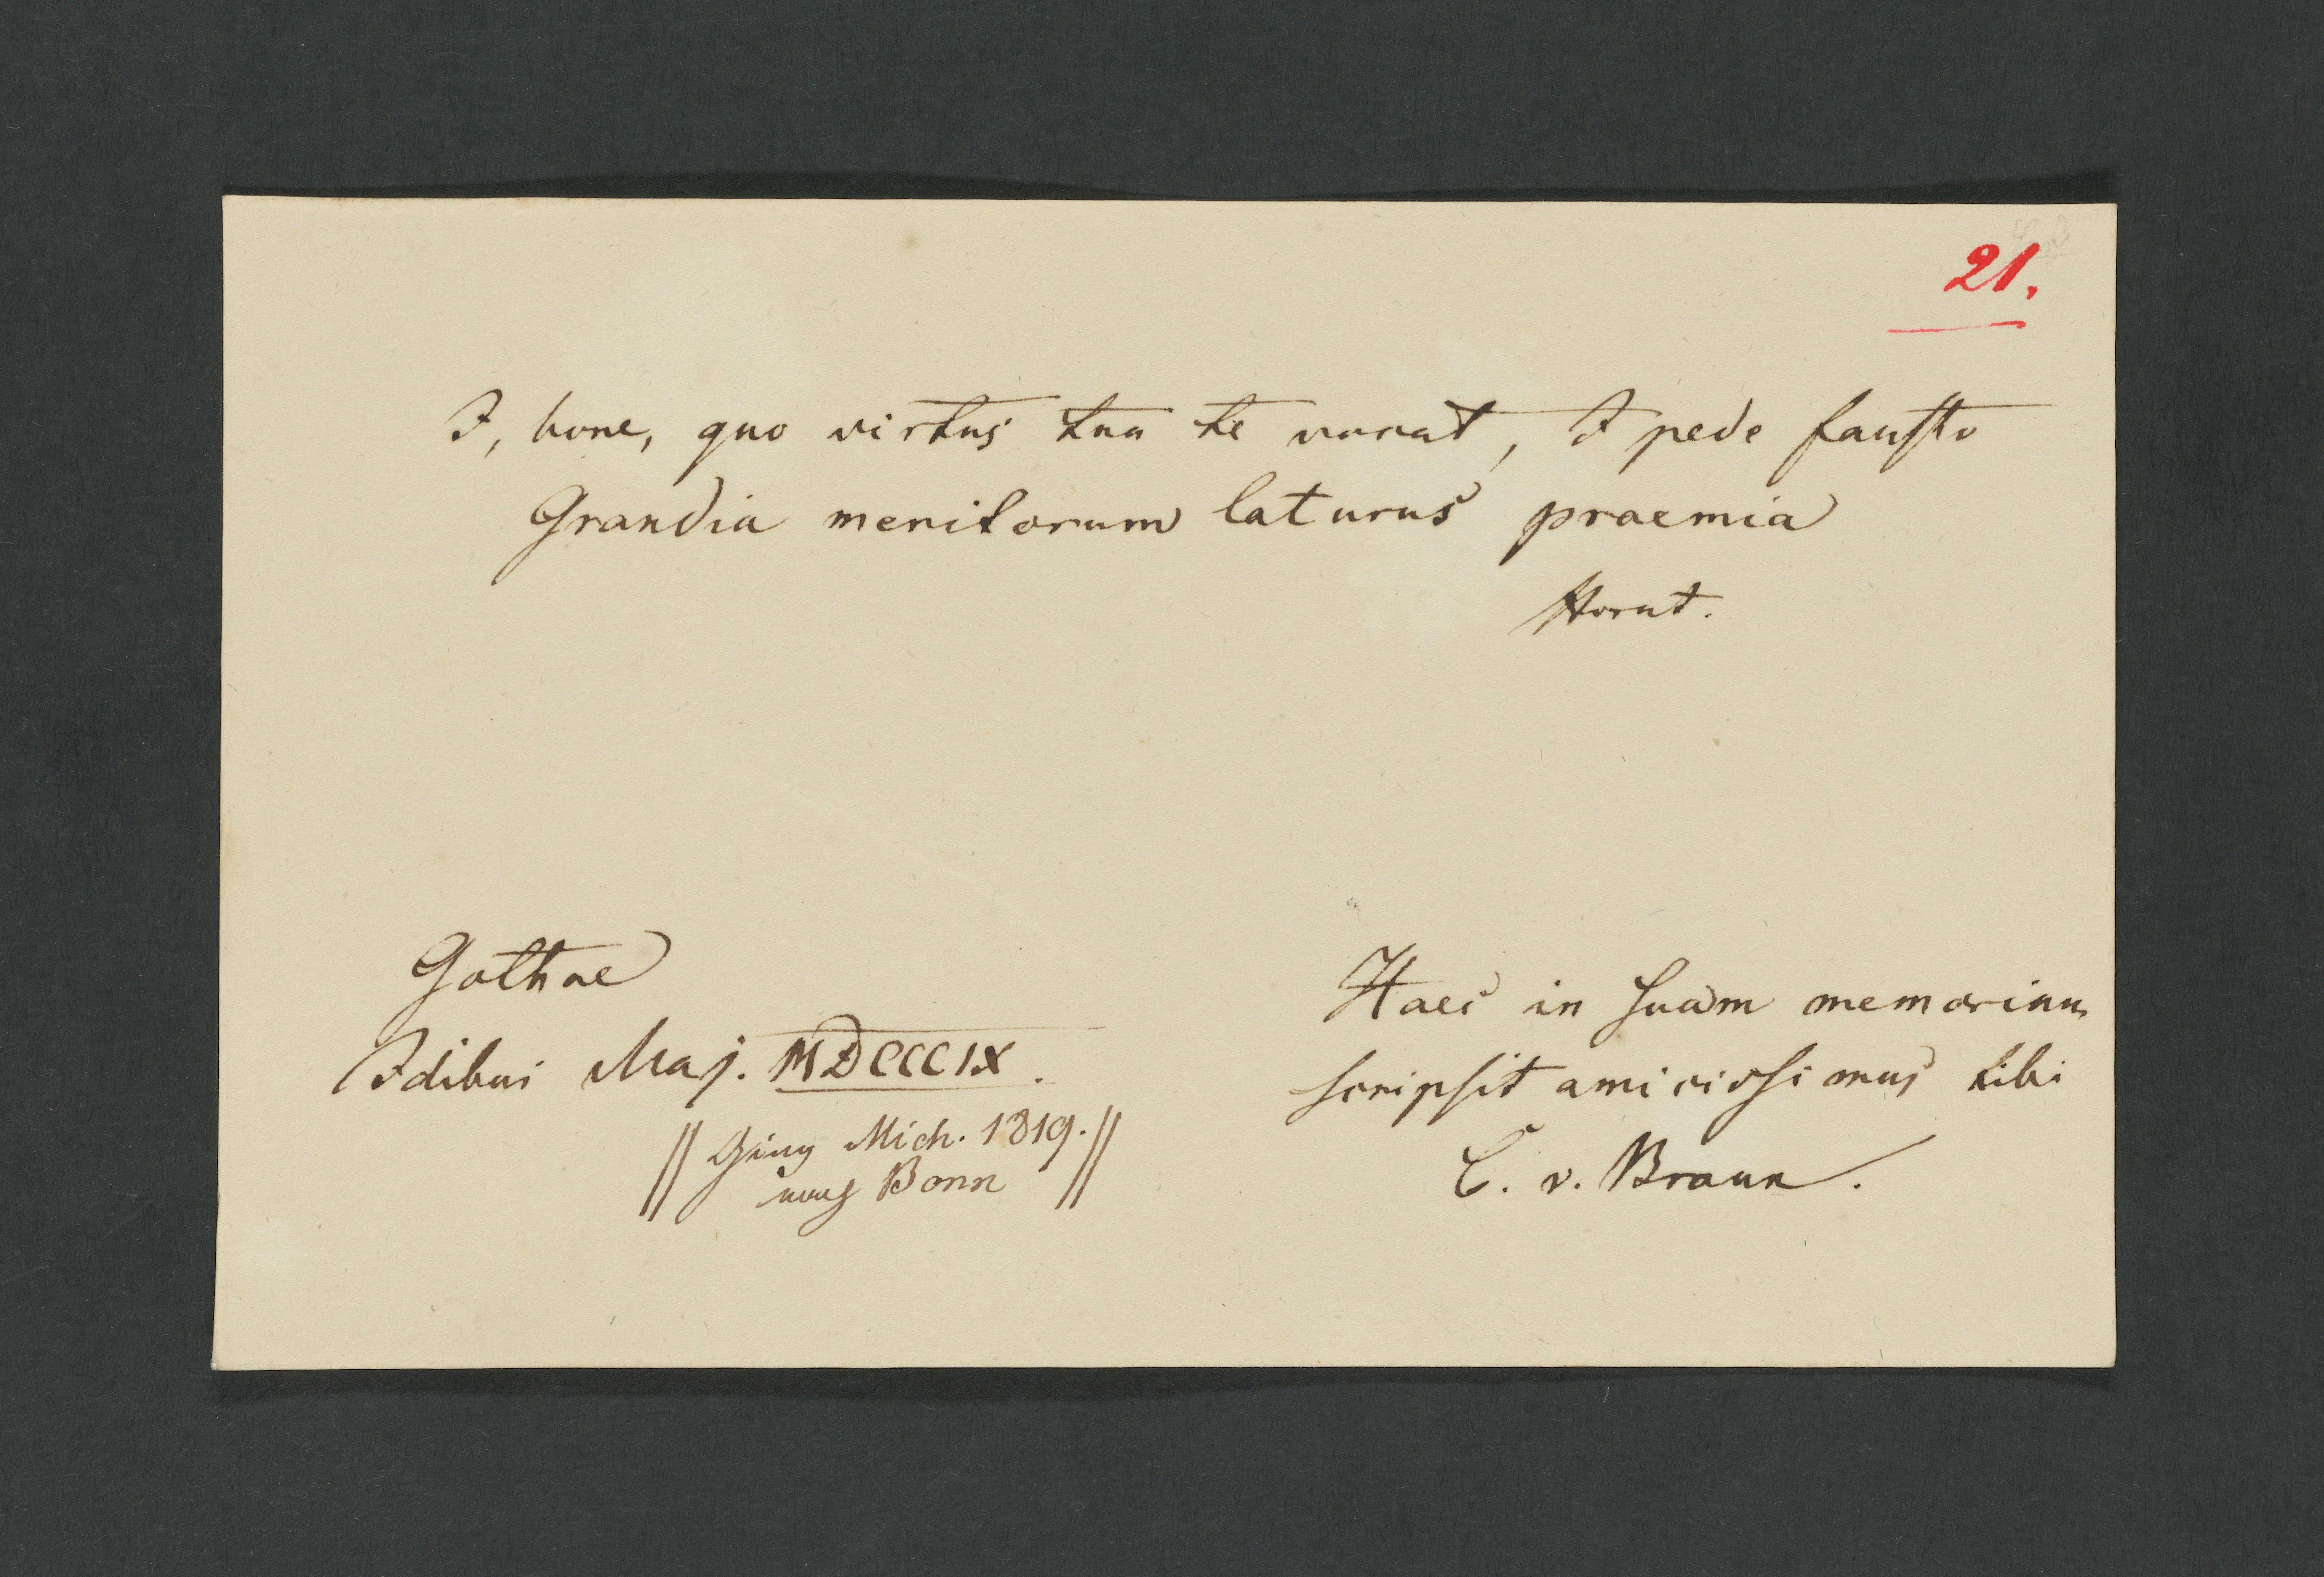 21.
I, bone, quo virtus tua te vocat, I pede fausto
Grandia meritorum laturus praemia
Horat.
Gothae
Idibus Maj. MDCCCIX.
// Ging Mich. 1819. //
nach Bonn
Haec in suam memoriam
scripsit amicissimus tibi
C. v. Braun.